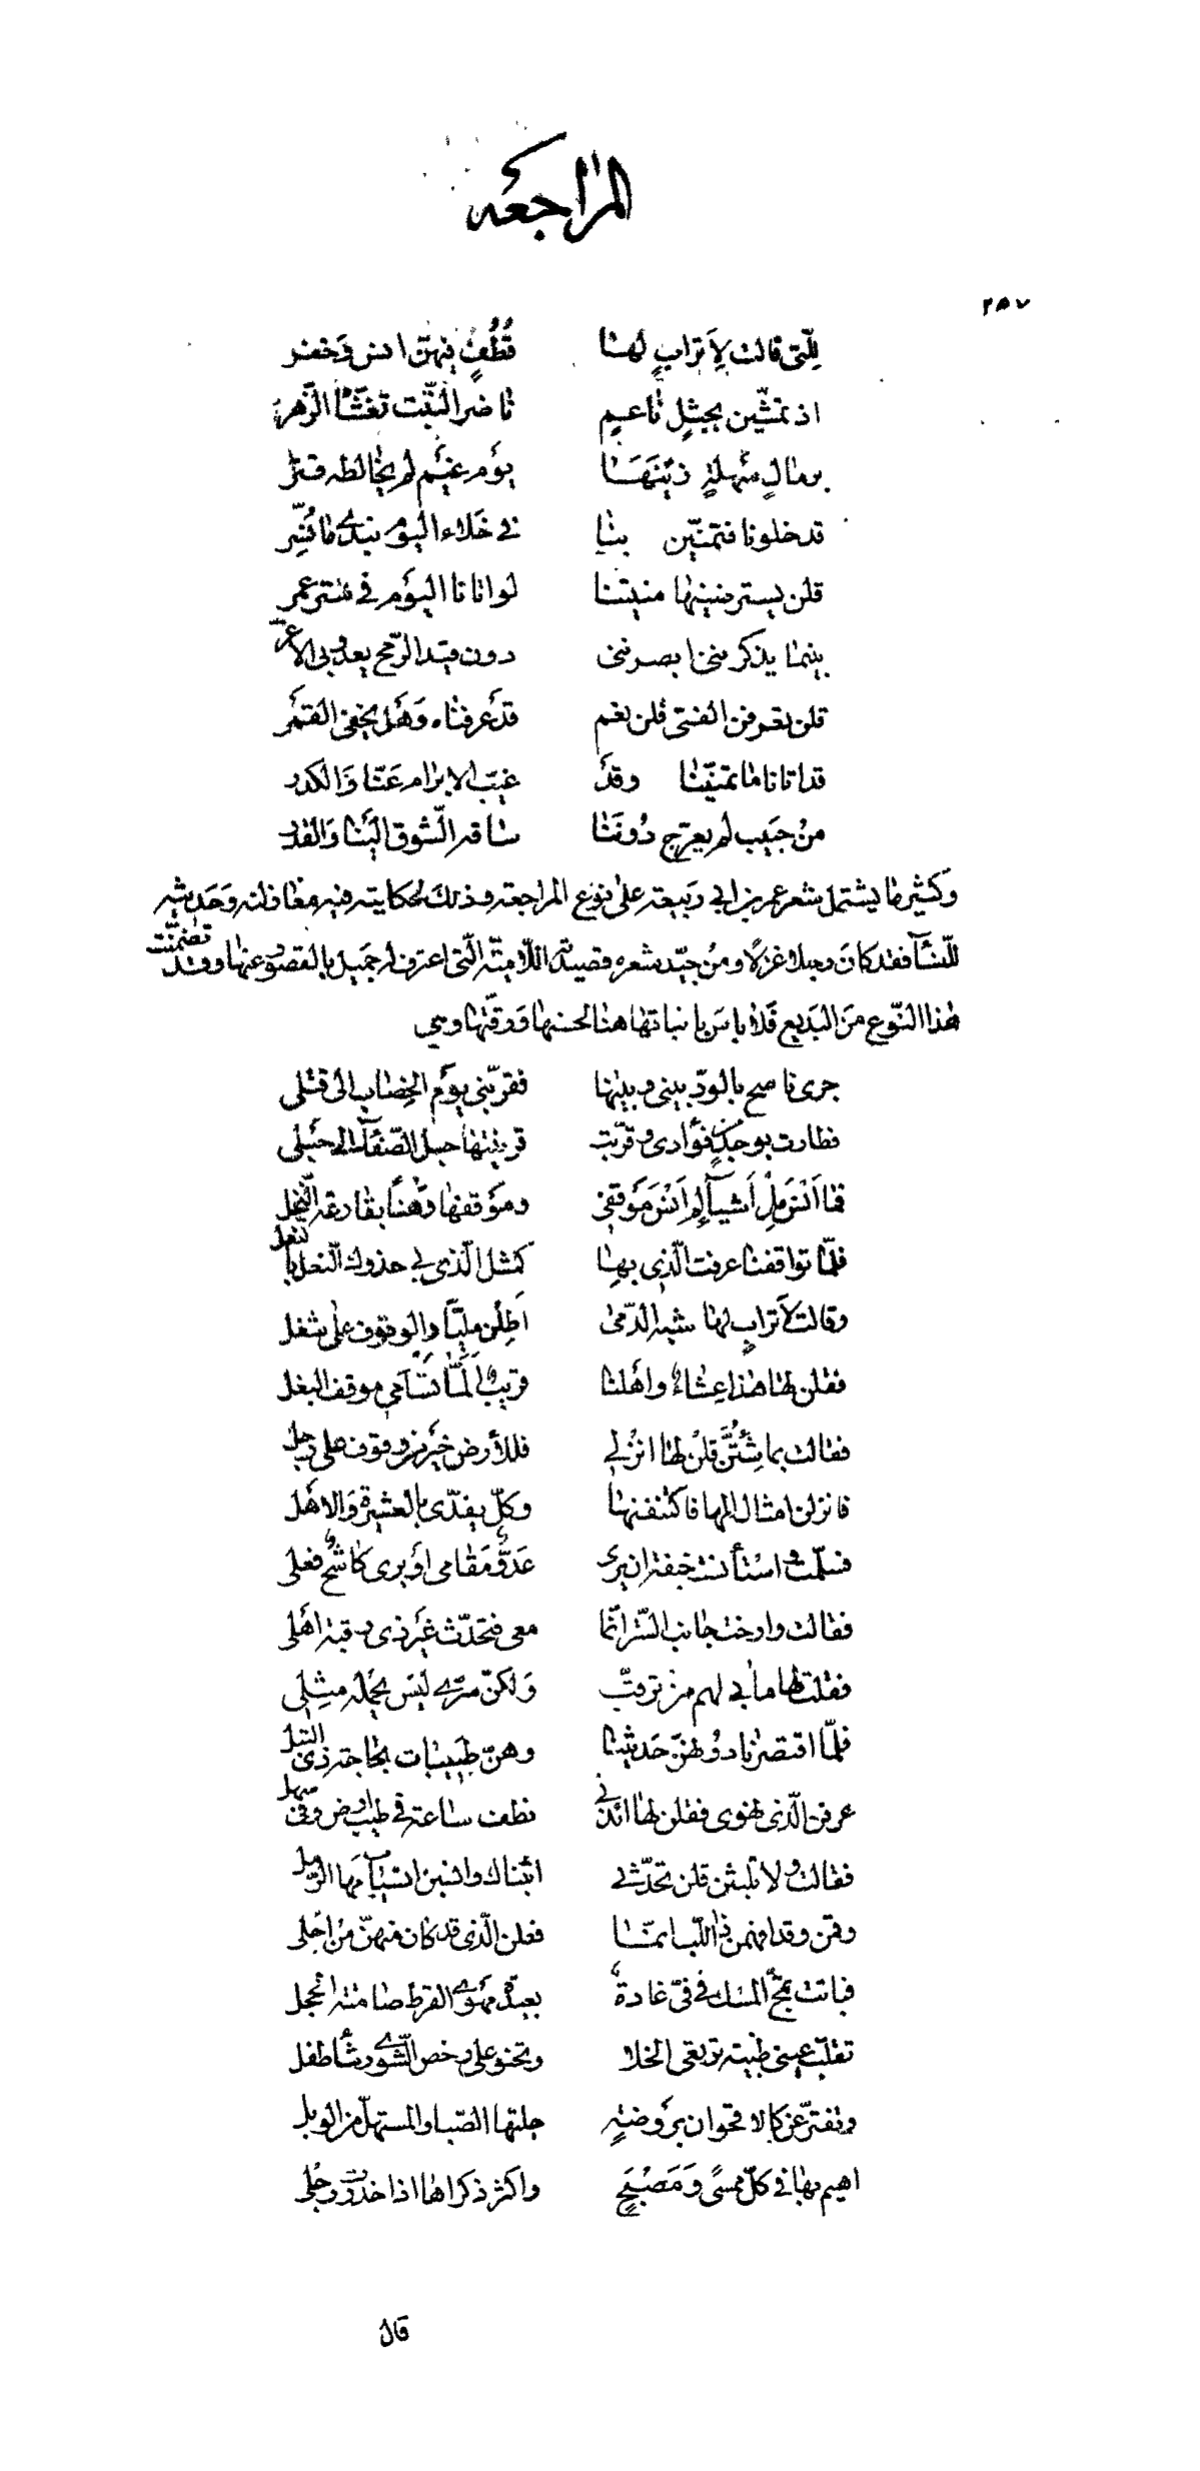 المراجعه
٢٥٧
للّتي قالت لِأَترابٍ لها قُطُفٍ فيهنّ انس وَخفر
اذ تمشّين بجيثلٍ ناعمٍ ناضر النّبت تغشّاه الزّهر
برمالٍ سَهلةٍ زيّنَهَا يَوم غَيم لم يخالطه قتر
قد خلونا فتمنّين بنا في خَلاء اليوم نبدي ما نُسِرّ
قلن يسترضينها منيتنا لو اتانا اليَوم في سرّ عمر
بينما يذكرنني ابصرنني دون قيد الرّمح يعدو بي الاغرّ
قلن تعرفن الفتى قلن نعم قد عَرفناه وَهَل يخفى القمَر
قد اتانا ما تمنّينا وقد غيّب الابرام عَنّا وَالكدر
منْ حبيب لم يعرّج دُونَنا ساقه الشّوق الَينا وَالقدر
وَكثير ما يشتمل شعر عمر بن ابي رَبيعة على نوع المراجعة وذلك لحكايته فيه مغازلته وَحَديثه
للنّسآء فقد كانَ رجلا غزلًا ومنْ جيّد شعره قصيدته اللّاميّة الّتي اعترف له جَميل بالقصور عنها وقد تضمّنت
هٰذا النّوع منَ البَديع فَلا باسَ باثباتها هنا لحسنها وَرقّتها وهي
جرى ناصح بالودّ بيني وبينها فقرّبني يوَم الخِضاب الى قتلي
فطارت بوجدٍ من فؤادي وقرّبت قرينتها حبل الصّفآء الى حَبلي
فما اَنْسَ مِلْ اَشيآء لم اَنْسَ مَوقفي ومَوقفها وَهنًا بقارعة النّخل
فلمّا تواقفنا عرفت الّذي بها كمثل الّذي بي حذوك النّعل بالنعل
وقالت لأترابٍ لها شبه الدّمى اَطِلْن مليّا والوقوف على شغل
فقلن لها هذا عِشاءٌ واَهلنا قريبٌ اَلَمّا تسَآمي موقف البغل
فقالت بما شِئْتُنَّ قلنْ لها انزلي فللأرض خَير من وقوف على رحل
فانزلن امثال المها فاكتنفنها وكلّ يفدّى بالعشيرة وَالاهَل
فسلّمت واسْتأنست خيفة ان يرى عَدوٌّ مَقامي اوَ يرى كاشحٌ فعلي
فقالت وارخت جانب السّتر انّما معي فتحدّث غَير ذي رقبة اهَلي
فقلت لها ما بي لهم من ترقّب وَلكنّ سرّي ليَس يحَمله مِثلي
فلمّا اقتصرنا دُونهنّ حَديثنا وهنّ طَبيبات بحاجة ذي التبل
عرفن الّذي نهوى فقلن لها ائذني نطف ساعة في طيب ارض وفي سهل
فقالت ولا تلبثن قلن تحدّثي اتيناك وانسبن انسيآب مَها الرمل
وقمن وقد افهمن ذا اللّب انّمَا فعلن الّذي قد كان منهنّ منْ اجَلي
فباتت تمجّ المسك في فيّ غادةٌ بعيدة مَهوى القرط صامتة الحجل
تقلّب عيني ظبية ترتعي الخلا وتحنو على رخص الشّوى رشأ طفل
وتفترّ عن كالاقحوان برَوضةٍ جلتها الصّبا والمستهلّ من الوبل
اهيم بها في كلّ ممسًى وَمَصْبَحٍ واكثر ذكراها اذا خدرت رجلي
قال